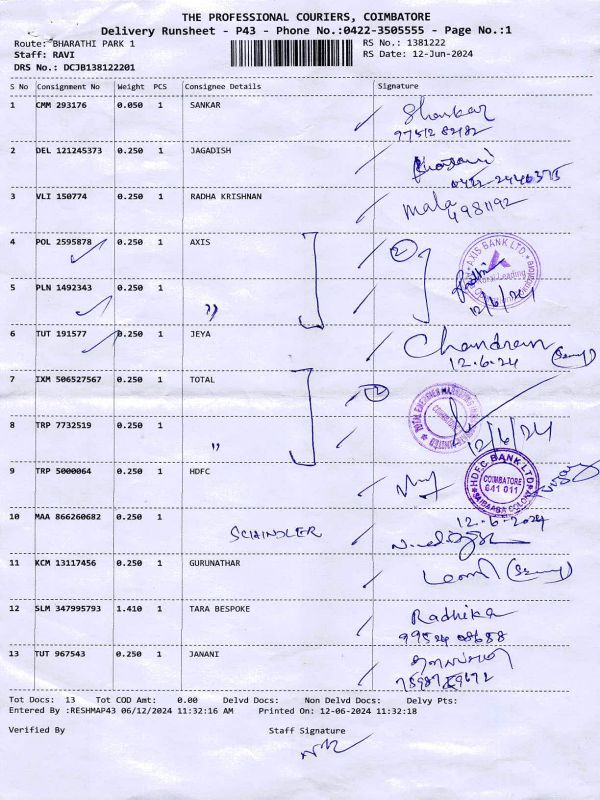 THE PROFESSIONAL COURIERS, COIMBATORE
Delivery Runsheet - P43 - Phone No.:0422-3505555 - Page No.:1
Route: BHARATHI PARK 1 RS No.: 1381222
Staff: RAVI RS Date: 12-Jun-2024
DRS No.: DCJB138122201
S No Consignment No Weight PCS Consignee Details Signature
1 CMM 293176 0.050 1 SANKAR Shankar
97512 82182
2 DEL 121245373 0.250 1 JAGADISH
0422 2446375
3 VLI 150774 0.250 1 RADHA KRISHNAN Mala
4981192
4 POL 2595878 0.250 1 AXIS 2 AXIS BANK LTD.
5 PLN 1492343 0.250 1 ,, 12/6/24
6 TUT 191577 0.250 1 JEYA Chandran
12.6.24
7 IXM 506527567 0.250 1 TOTAL 2
8 TRP 7732519 0.250 1 ,, 12/6/24
9 TRP 5000064 0.250 1 HDFC HDFC BANK LTD
COIMBATORE
641 011
SAIBABA COLONY
10 MAA 866260682 0.250 1 SCHINDLER 12-6-2024
11 KCM 13117456 0.250 1 GURUNATHAR
12 SLM 347995793 1.410 1 TARA BESPOKE Radhika
99524 08688
13 TUT 967543 0.250 1 JANANI
Tot Docs: 13 Tot COD Amt: 0.00 Delvd Docs: Non Delvd Docs: Delvy Pts:
Entered By :RESHMAP43 06/12/2024 11:32:16 AM Printed On: 12-06-2024 11:32:18
Verified By Staff Signature